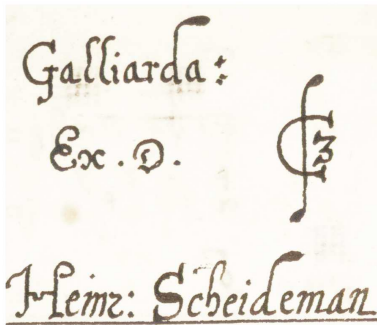 Galliarda:
Ex. D. 3
Heinr: Scheideman